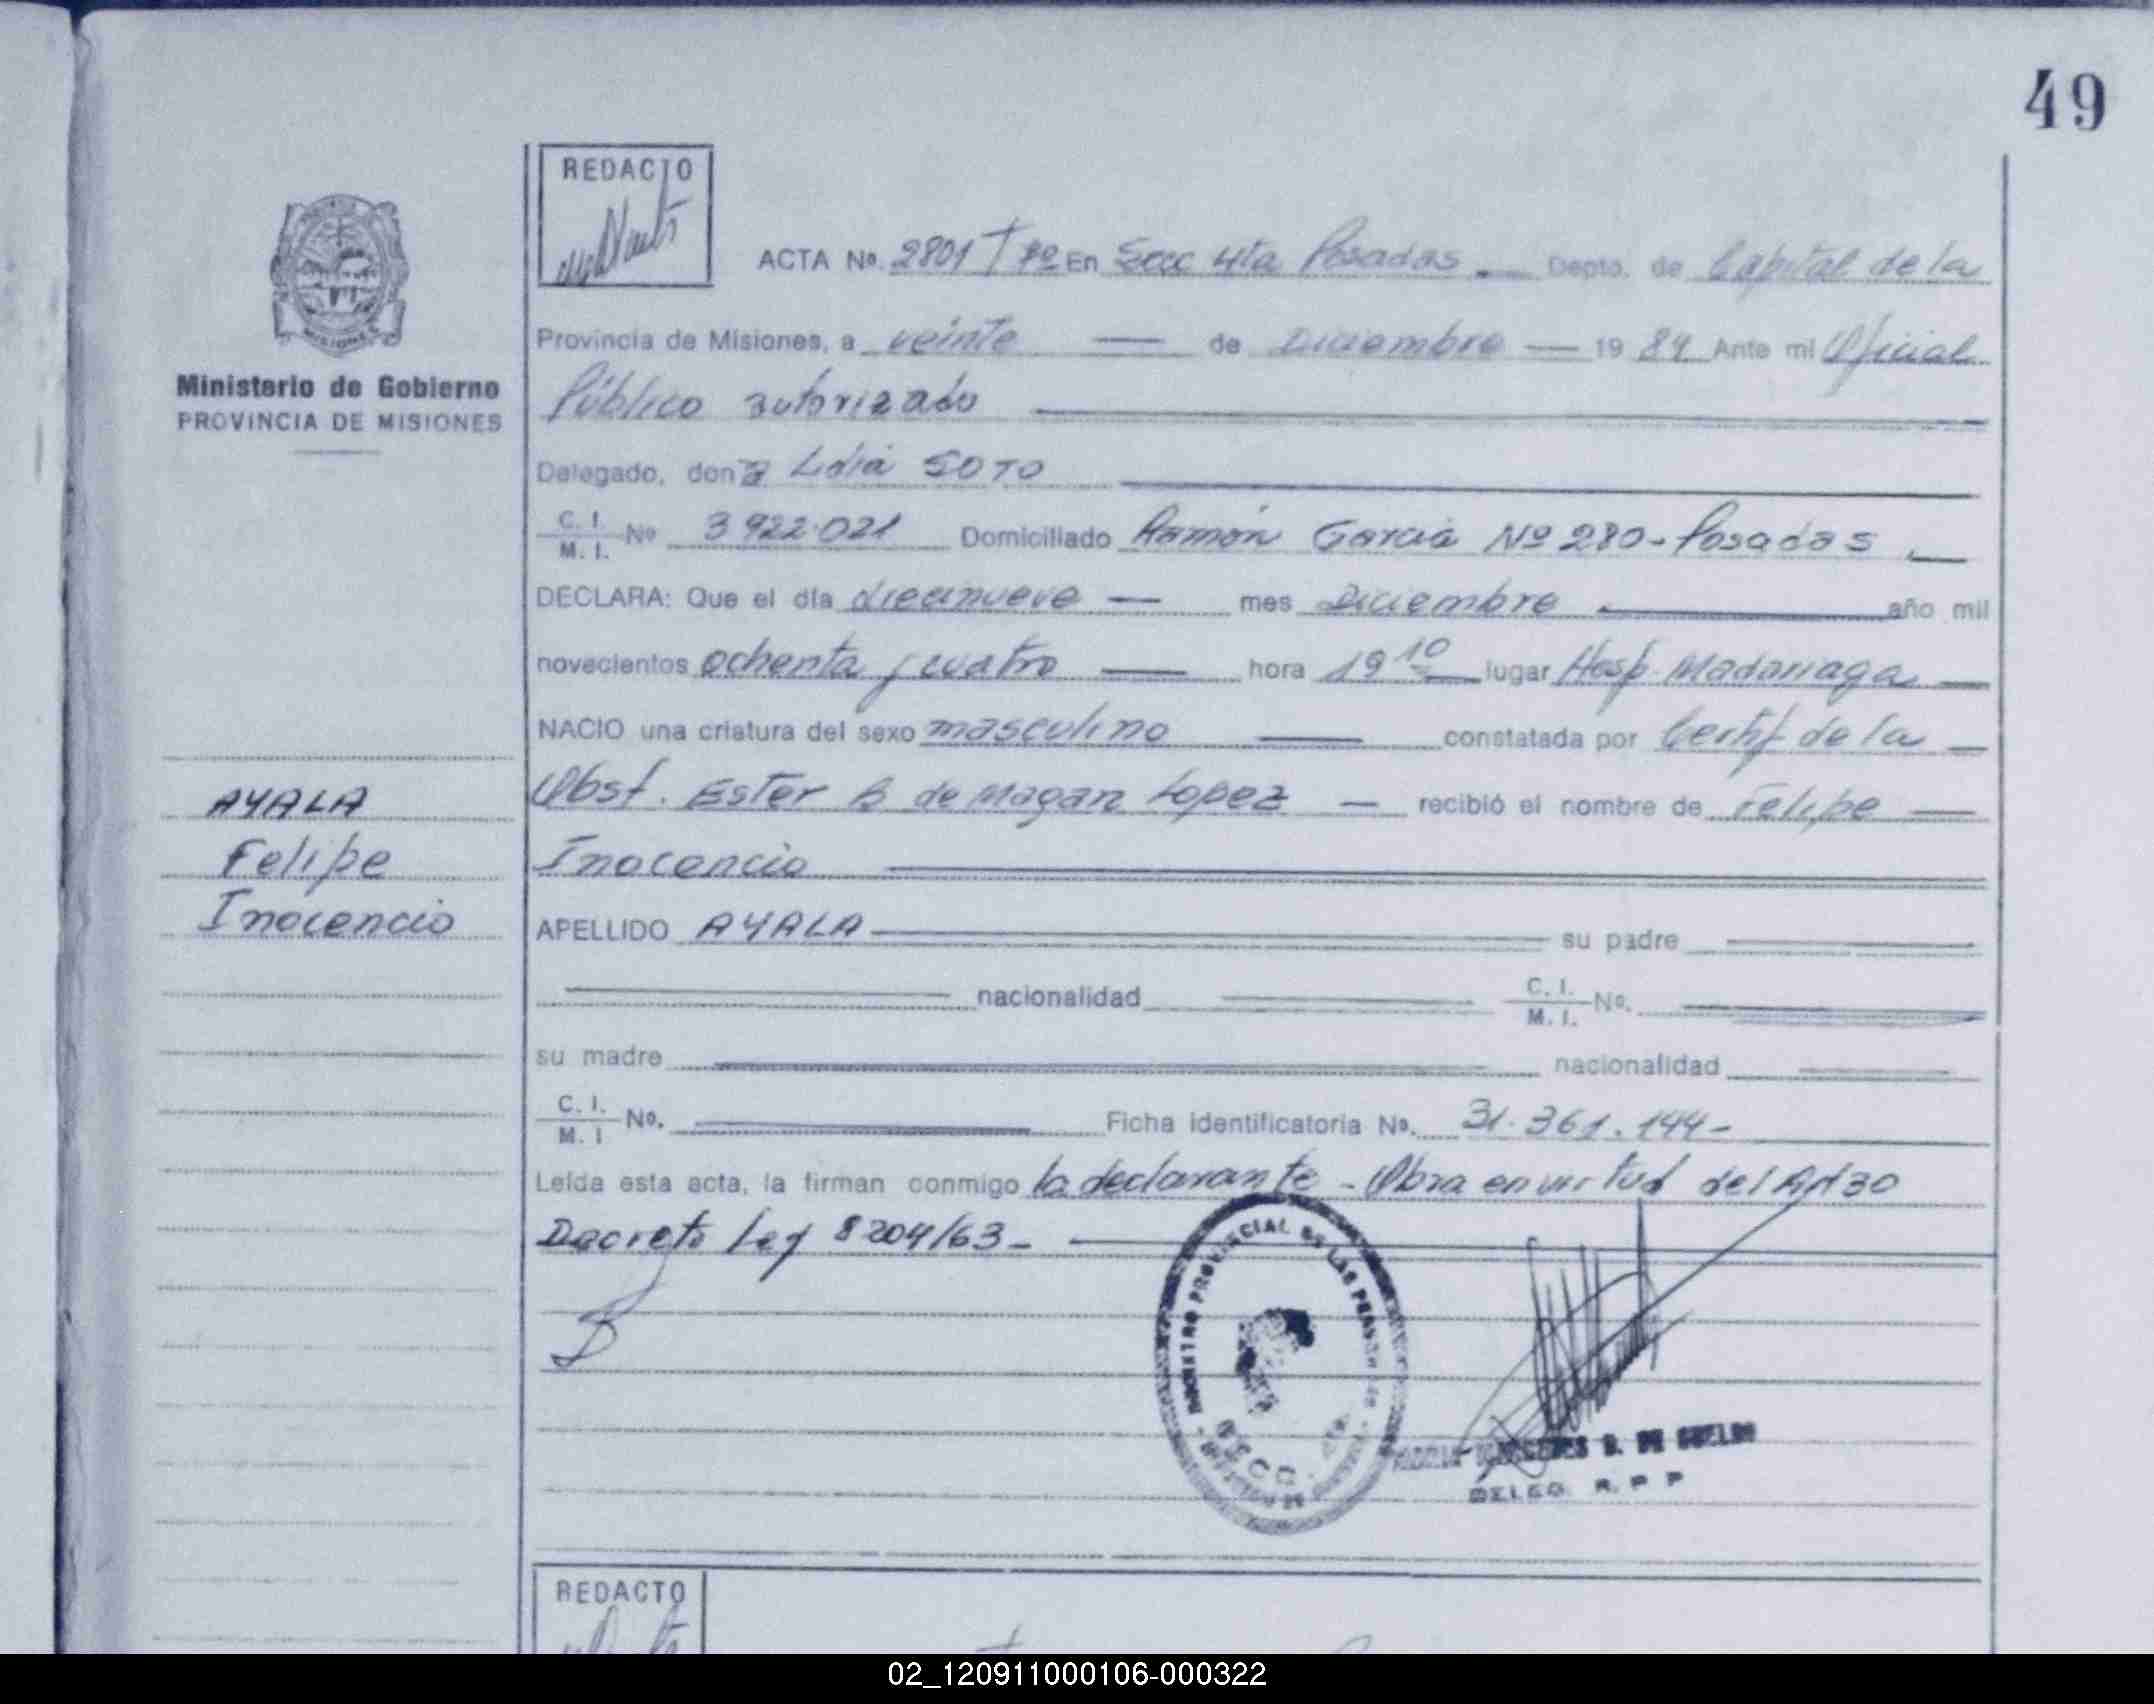 49
REDACTO
ACTA Nº. 2801 Tº 7º En Secc 4ta Posadas Depto. de Capital de la
Provincia de Misiones, a veinte — de Diciembre — 19 84 Ante mi Oficial
Público autorizado
Delegado, don a Lidia SOTO
C. I.
M. I. Nº 3922.021 Domiciliado Ramón Garcia Nº 280 - Posadas
DECLARA: Que el día diecinueve — mes Diciembre año mil
novecientos ochenta y cuatro — hora 19 10 lugar Hosp. Madariaga —
NACIO una criatura del sexo masculino — constatada por Certif de la —
Obst. Ester B de Magan Lopez — recibió el nombre de Felipe —
Inocencio
APELLIDO AYALA su padre
nacionalidad C. I.
M. I. Nº.
su madre nacionalidad
C. I.
M. I Nº. Ficha identificatoria Nº. 31.361.144-
Leída esta acta, la firman conmigo la declarante - Obra en virtud del Art 30
Decreto Ley 8204/63 -
Ministerio de Gobierno
PROVINCIA DE MISIONES
AYALA
Felipe
Inocencio
REGISTRO PROVINCIAL DE LAS PERSONAS
SECC.
DELEG. R. P. P
REDACTO
02_120911000106-000322